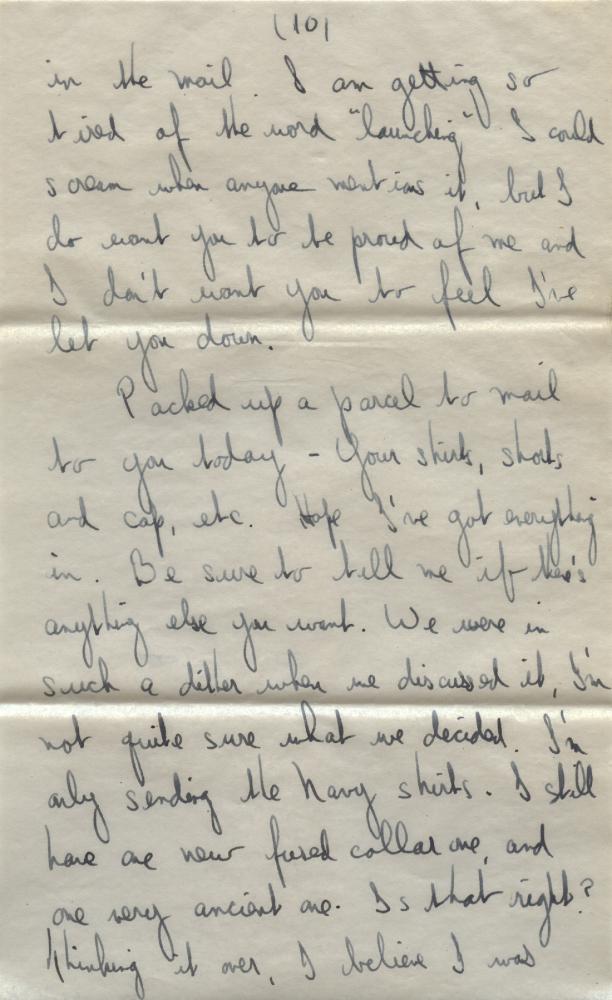 (10)
in the mail. I am getting so
tired of the word "launching" I could
scream when anyone mentions it, but I
do want you to be proud of me and
I don't want you to feel I've
let you down.
Packed up a parcel to mail
to you today - Your shirts, shorts
and cap, etc. Hope I've got everything
in. Be sure to tell me if there's
anything else you want. We were in
such a dither when we discussed it, I'm
not quite sure what we decided. I'm
only sending the Navy shirts. I still
have one new fused collar one, and
one very ancient one. Is that right?
Thinking it over, I believe I was